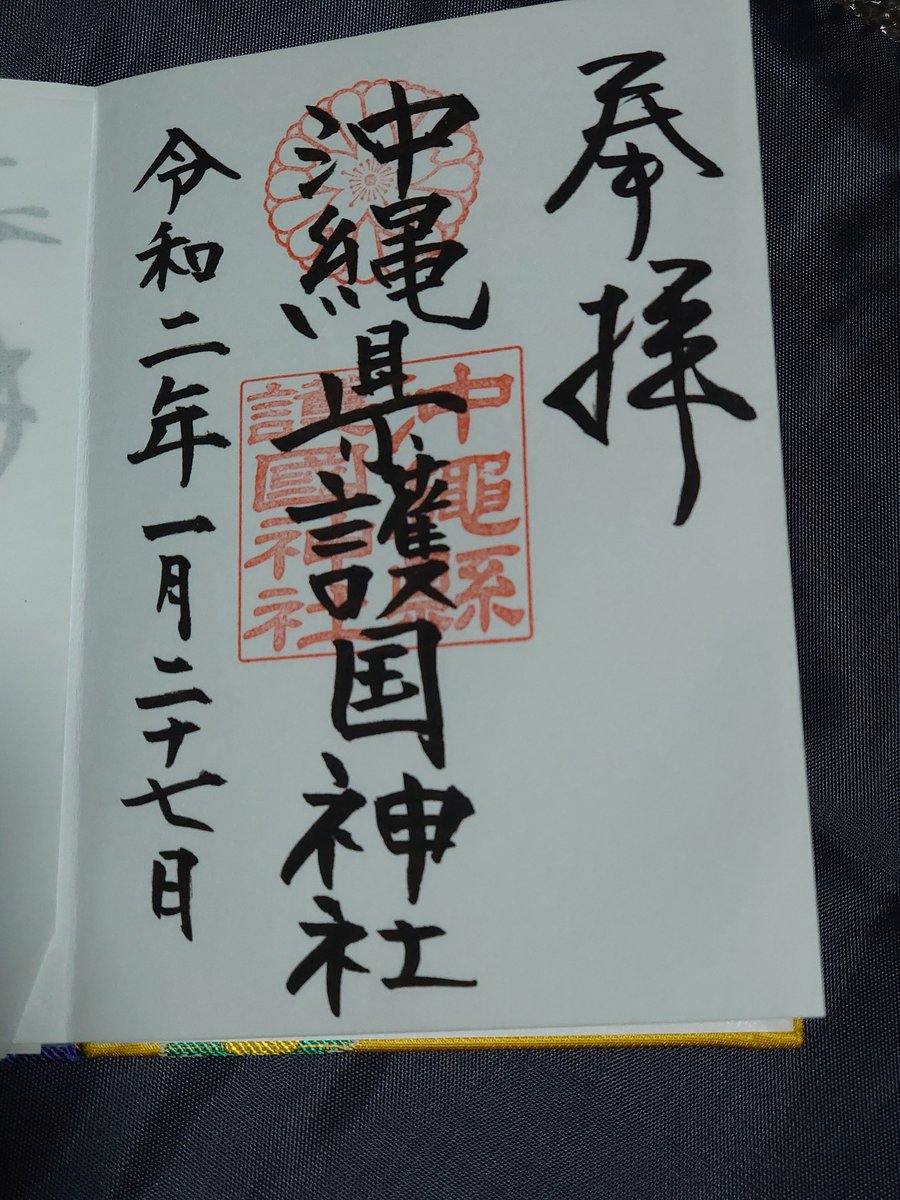 奉拝
沖縄県護国神社
沖縄縣
護國神社
令和二年一月二十七日